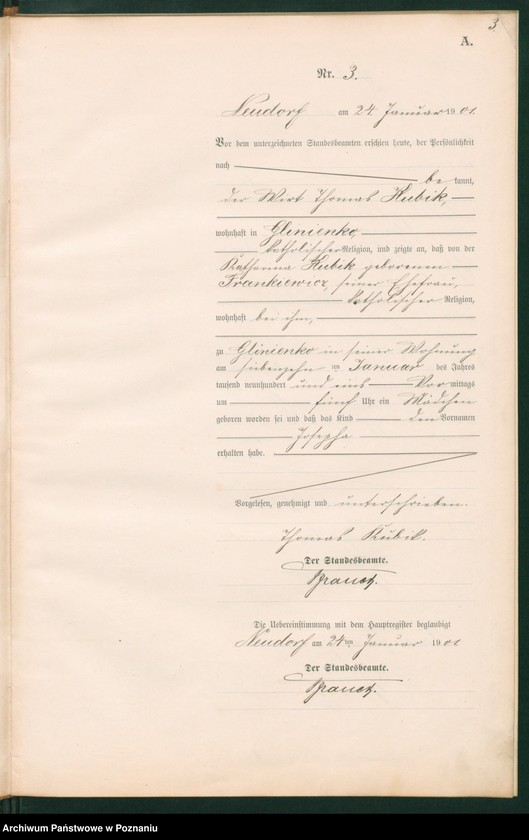 3
A.
Nr. 3.
Neudorf am 24 Januar 1901
Vor dem unterzeichneten Standesbeamten erschien heute, der Persönlichkeit
nach be kannt,
der Wirt Thomas Kubik,
wohnhaft in Glinienko,
katholischer Religion, und zeigte an, daß von der
Katharina Kubik geborenen
Frankiewicz, seiner Ehefrau,
katholischer Religion,
wohnhaft bei ihm,
zu Glinienko in seiner Wohnung
am siebenzehn ten Januar des Jahres
tausend neunhundert und eins Vor mittags
um fünf Uhr ein Mädchen
geboren worden sei und daß das Kind den Vornamen
Josepha
erhalten habe.
Vorgelesen, genehmigt und unterschrieben.
Thomas Kubik.
Der Standesbeamte.
Die Uebereinstimmung mit dem Hauptregister beglaubigt
Neudorf am 24ten Januar 1901
Der Standesbeamte.
Archiwum Państwowe w Poznaniu